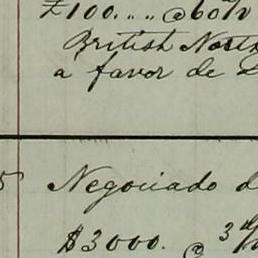 £100. „ „ @ 60 d/v
British North
a favor de
5 Negociado d
$3000. @ 3 d/